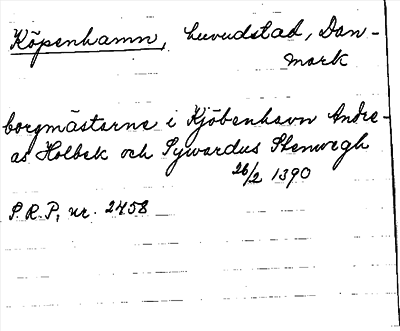 Köpenhamn, huvudstad, Dan-
mark
borgmästarne i Kjöbenhavn Andre-
as Holbek och Sywardus Stenwegh
26/2 1390
S.R.P, nr. 2458